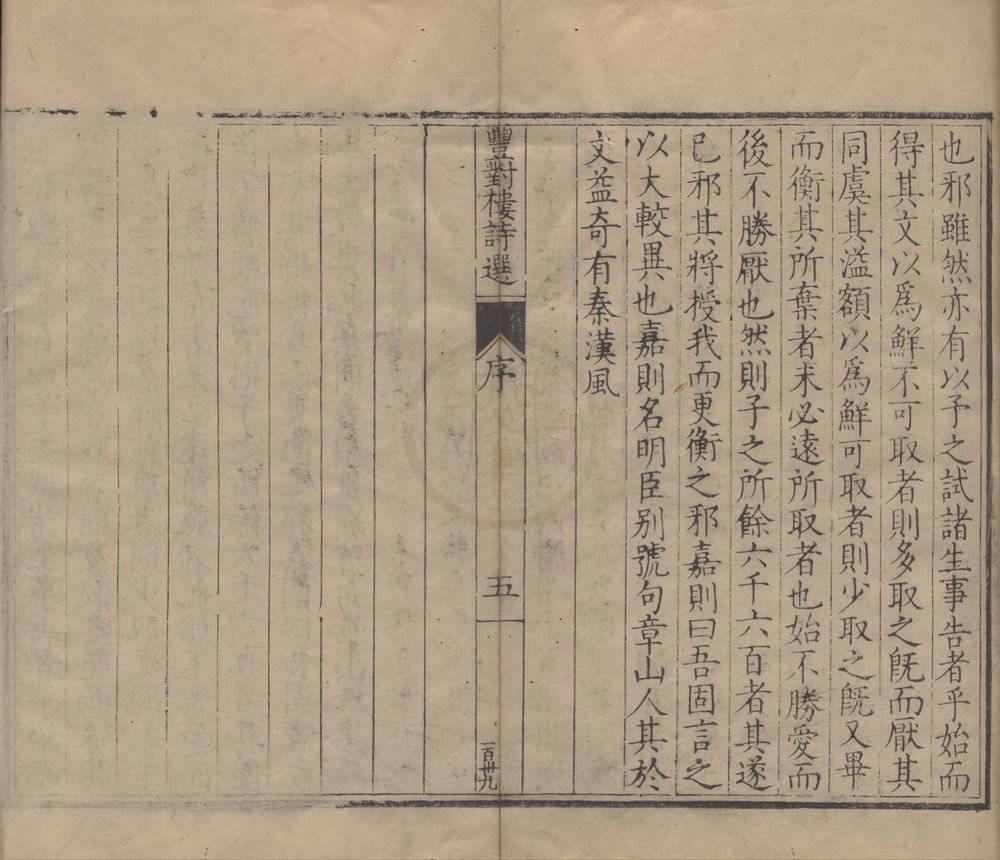 也邪雖然亦有以予之試諸生事告者乎始而
得其文以爲鮮不可取者則多取之旣而厭其
同虞其溢額以爲鮮可取者則少取之旣又畢
而衡其所棄者未必遠所取者也始不勝愛而
後不勝厭也然則子之所餘六千六百者其遂
已邪其將授我而更衡之邪嘉則曰吾固言之
以大較異也嘉則名明臣别號句章山人其於
文益奇有秦漢風
豐對樓詩選
序
五
一百卅九